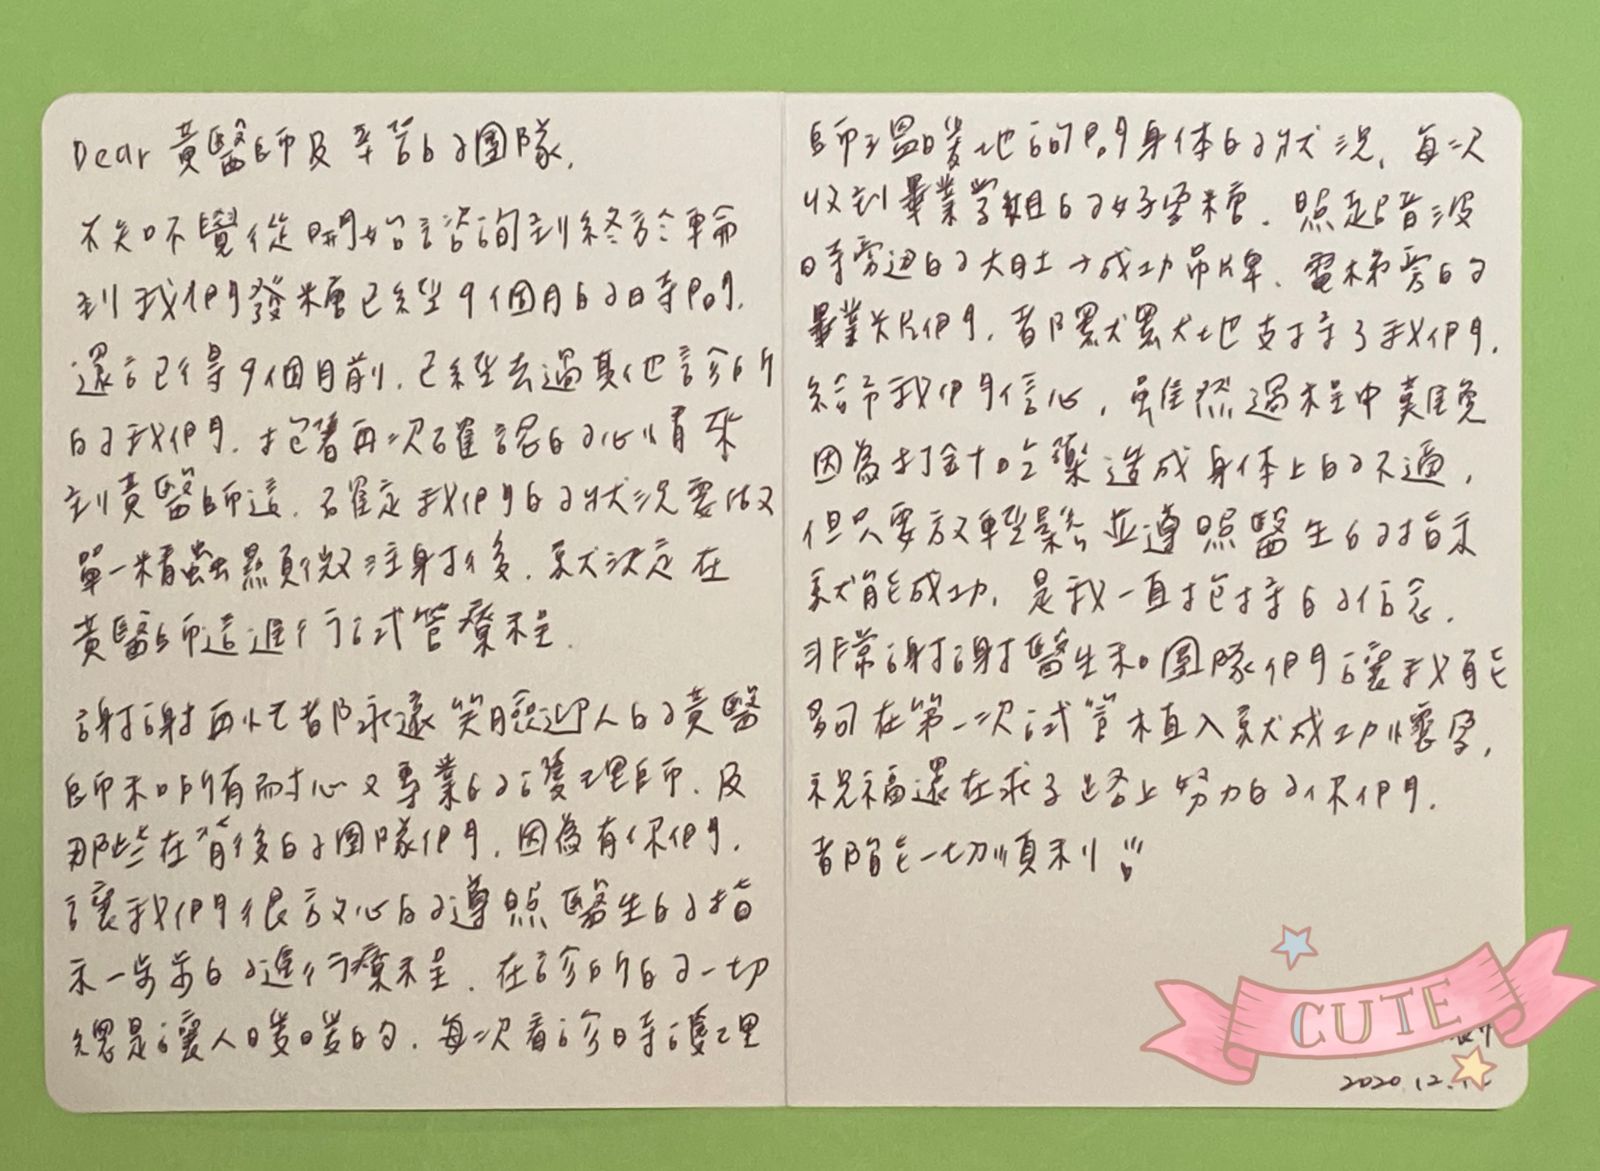 Dear 黃醫師及辛苦的團隊,
不知不覺從開始諮詢到終於輪
到我們發糖已經9個月的時間.
還記得9個月前,已經去過其他診所
的我們,抱著再次確認的心情來
到黃醫師這,確定我們的狀況要做
單一精蟲顯微注射後,就決定在
黃醫師這進行試管療程.
謝謝再忙都永遠笑臉迎人的黃醫
師和所有耐心又專業的護理師,及
那些在背後的團隊們,因為有你們,
讓我們很放心的遵照醫生的指
示一步步的進行療程.在診所的一切
總是讓人暖暖的,每次看診時護理
師溫暖地詢問身体的狀況,每次
收到畢業學姐的好孕糖,照超音波
時旁边的大肚→成功吊牌,電梯旁的
畢業片們,都默默地支持了我們,
給予我們信心,雖然過程中難免
因為打針吃藥造成身体上的不適,
但只要放輕鬆並遵照醫生的指示
就能成功,是我一直抱持的信念.
非常謝謝醫生和團隊們讓我能
夠在第一次試管植入就成功懷孕,
祝福還在求子路上努力的你們,
都能一切順利!!
CUTE
2020.12.